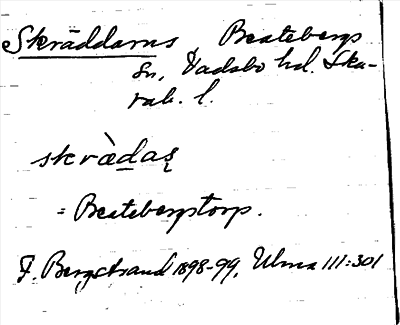 Skräddarns Beatebergs
sn, Vadsbo hd. Ska-
rab. l.
skrὰdas̨
= Beatebergstorp.
F. Bergstrand 1898-99, Ulma 111:301